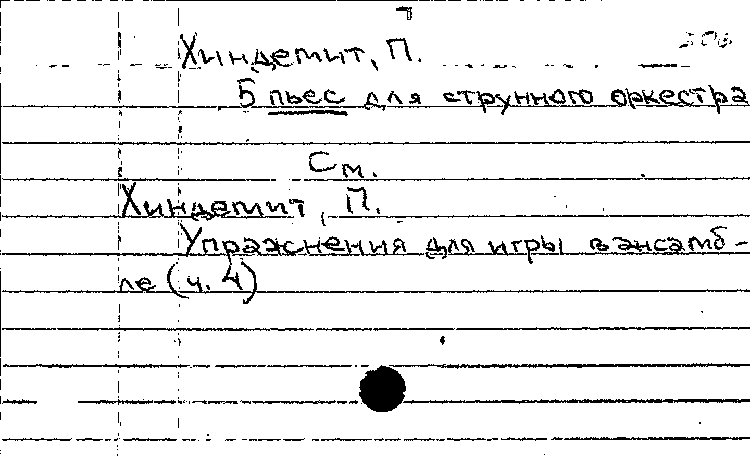 Хиндемит, П.
5 пьес для струнного оркестра
См.
Хиндемит, П.
Упражнения для игры в ансамб-
ле (ч. 4)